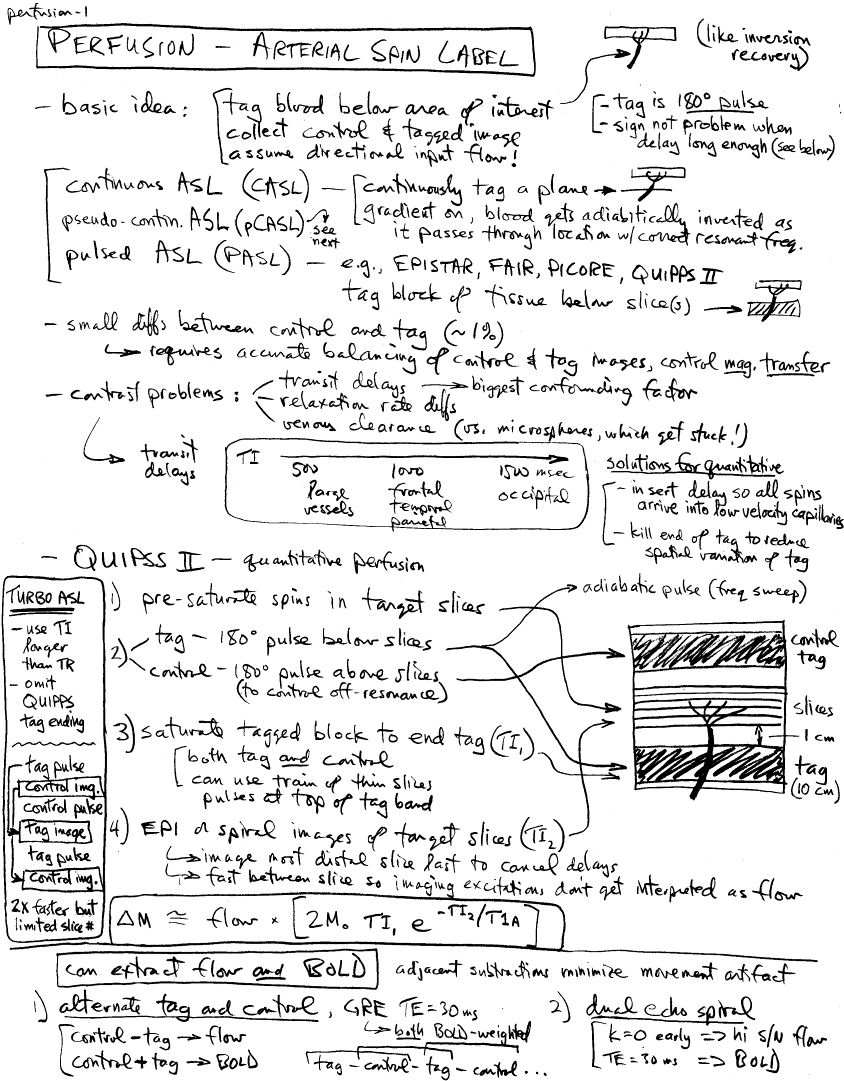 perfusion-1
PERFUSION – ARTERIAL SPIN LABEL
(like inversion
recovery)
– basic idea:
tag blood below area of interest
collect control & tagged image
assume directional input flow!
– tag is 180° pulse
– sign not problem when
delay long enough (see below)
continuous ASL (CASL) –
continuously tag a plane →
gradient on, blood gets adiabitically inverted as
it passes through location w/correct resonant freq.
pseudo-contin. ASL (pCASL)
see
next
pulsed ASL (PASL) – e.g., EPISTAR, FAIR, PICORE, QUIPPS II
tag block of tissue below slice(s) →
– small diffs between control and tag (~1%)
↳ requires accurate balancing of control & tag images, control mag. transfer
– contrast problems:
transit delays → biggest confounding factor
relaxation rate diffs
venous clearance (vs. microspheres, which get stuck!)
transit
delays
TI
500 1000 1500 msec
large frontal occipital
vessels temporal
parietal
solutions for quantitative
– insert delay so all spins
arrive into low velocity capillaries
– kill end of tag to reduce
spatial variation of tag
– QUIPSS II – quantitative perfusion
TURBO ASL
– use TI
longer
than TR
– omit
QUIPPS
tag ending
tag pulse
control img.
control pulse
tag image
tag pulse
control img.
2X faster but
limited slice #
1) pre-saturate spins in target slices
→ adiabatic pulse (freq sweep)
2) tag – 180° pulse below slices
control – 180° pulse above slices
(to control off-resonance)
3) saturate tagged block to end tag (TI₁)
both tag and control
can use train of thin slices
pulses at top of tag band
4) EPI or spiral images of target slices (TI₂)
↳ image most distal slice last to cancel delays
↳ fast between slice so imaging excitations don't get interpreted as flow
control
tag
slices
1 cm
tag
(10 cm)
ΔM ≅ flow × [2M₀ TI₁ e^(-TI₂/T1A)]
can extract flow and BOLD
adjacent subtractions minimize movement artifact
1) alternate tag and control, GRE TE=30ms
↳ both BOLD-weighted
control – tag → flow
control + tag → BOLD
tag – control – tag – control...
2) dual echo spiral
k=0 early => hi S/N flow
TE=30 ms => BOLD